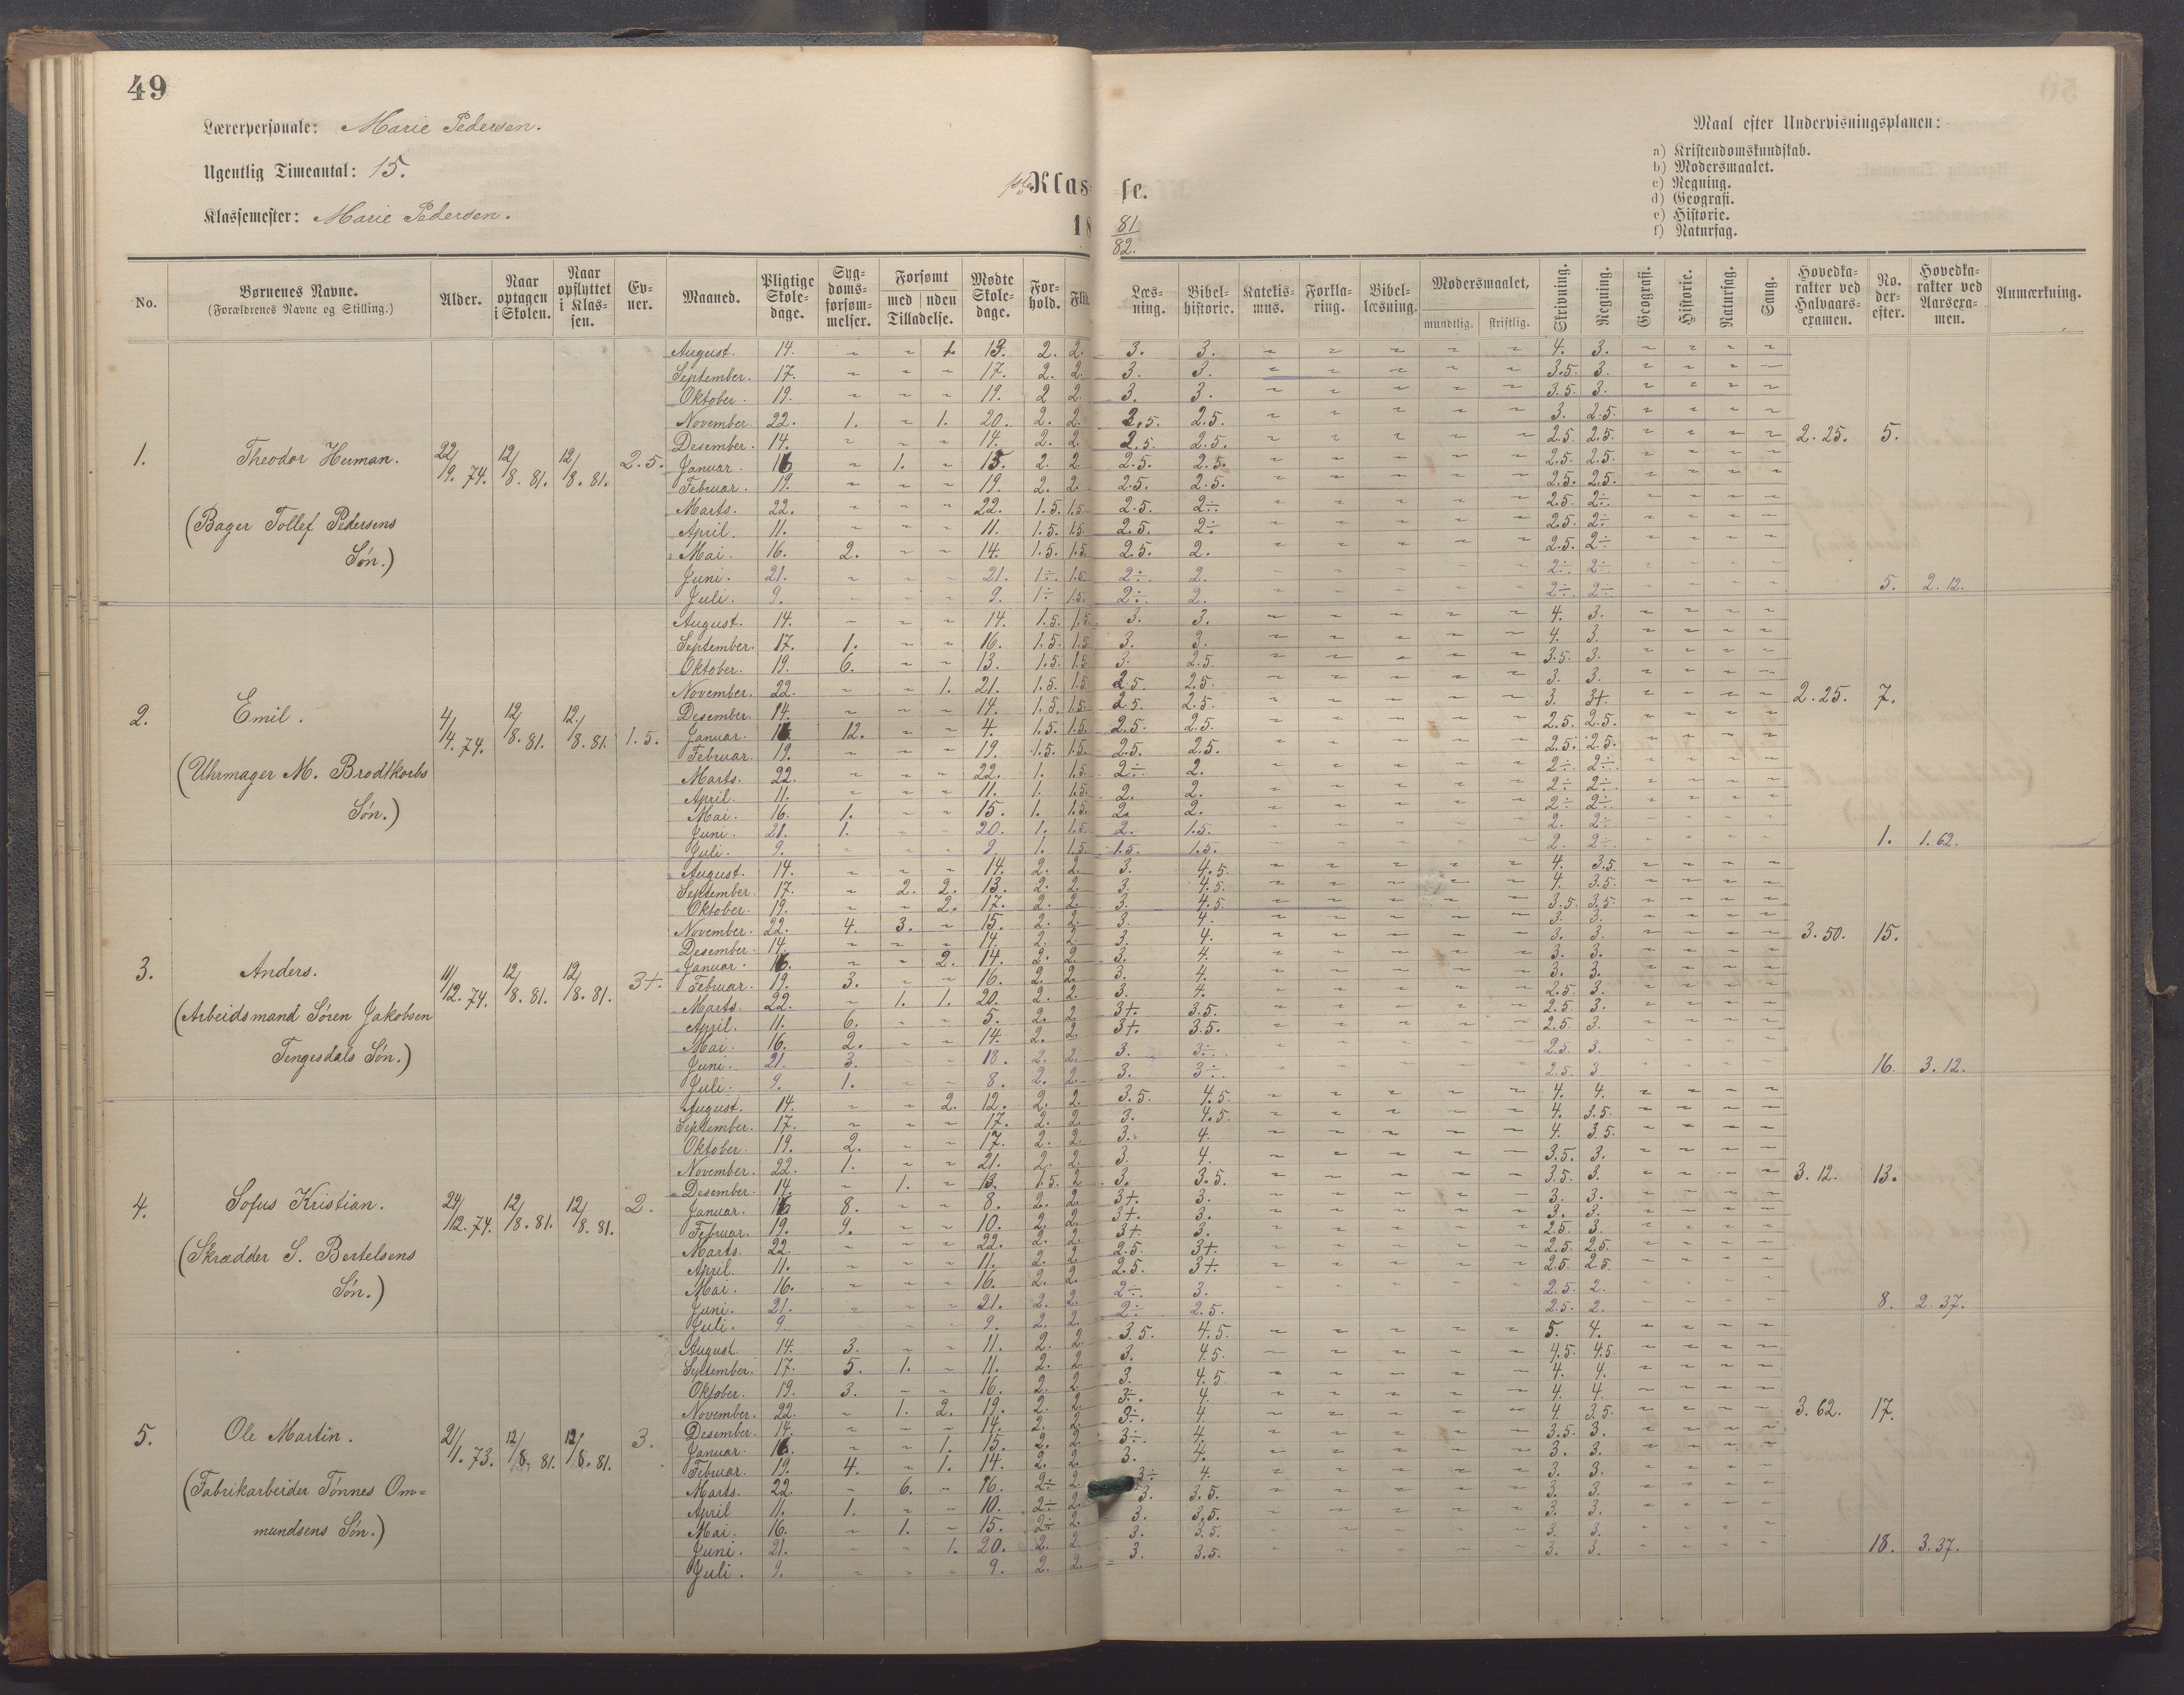 49
Lærerpersonale: Marie Pedersen.
Ugentlig Timeantal: 15.
Klassemester: Marie Pedersen.
Klas=
se.
18
81
82.
Maal efter Undervisningsplanen:
a) Kristendomskundskab.
b) Modersmaalet.
c) Regning.
d) Geografi.
e) Historie.
f) Naturfag.
No. | Børnenes Navne. (Forældrenes Navne og Stilling.) | Alder. | Naar optagen i Skolen. | Naar opflyttet i Klassen. | Evner. | Maaned. | Pligtige Skoledage. | Sygdomsforsømmelser. | Forsømt med uden Tilladelse. | Mødte Skoledage. | Forhold. | Flid. | Læsning. | Bibelhistorie. | Katekismus. | Forklaring. | Bibellæsning. | Modersmaalet, mundtlig. skriftlig. | Skrivning. | Regning. | Geografi. | Historie. | Naturfag. | Sang. | Hovedkarakter ved Halvaarsexamen. | No. derefter. | Hovedkarakter ved Aarsexamen. | Anmærkning.
1. Theodor Human. 22/19. 74. 12/8. 81. 12/8. 81. 2.5.
(Bager Tollef Pedersens
Søn.)
August. 14. 13. 2. 2. 3. 3. 4. 3.
September. 17. 17. 2. 2. 3. 3. 3.5. 3.
Oktober. 19. 19. 2 2. 3. 3. 3.5. 3.
November. 22. 1. 1. 20. 2. 2. 2.5. 2.5. 3. 2.5.
Desember. 14. 14. 2. 2. 2.5 2.5. 2.5. 2.5. 2.25. 5.
Januar. 16 1. 15. 2. 2. 2.5. 2.5. 2.5. 2.5.
Februar. 19. 19. 2. 2. 2.5. 2.5. 2.5. 2.5.
Marts. 22. 22. 1.5. 1.5. 2.5. 2÷. 2.5. 2÷.
April. 11. 11. 1.5. 1.5. 2.5. 2÷ 2.5. 2÷
Mai. 16. 2. 14. 1.5. 1.5. 2.5. 2. 2.5. 2÷
Juni. 21. 21. 1÷. 1.5. 2÷. 2. 2÷. 2÷.
Juli. 9. 9. 1÷ 1.5. 2÷. 2. 2÷. 2÷. 5. 2.12.
2. Emil. 4/4. 74. 12/8. 81. 12/8. 81. 1.5.
(Uhrmager M. Brodtkorbs
Søn.)
August. 14. 14. 1.5. 1.5 3. 3. 4. 3.
September. 17. 1. 16. 1.5. 1.5 3. 3. 4. 3.
Oktober. 19. 6. 13. 1.5. 1.5 3. 2.5. 3.5. 3.
November. 22. 1. 21. 1.5. 1.5 2.5. 2.5. 3. 3.
Desember. 14. 14. 1.5. 1.5. 2.5. 2.5. 3. 3+ 2.25. 7.
Januar. 16 12. 4. 1.5. 1.5. 2.5. 2.5. 2.5. 2.5.
Februar. 19. 19. 1.5. 1.5. 2.5. 2.5. 2.5. 2.5.
Marts. 22. 22. 1. 1.5. 2÷. 2. 2÷. 2÷.
April. 11. 11. 1. 1.5. 2. 2. 2÷ 2÷.
Mai. 16. 1. 15. 1. 1.5. 2. 2. 2÷ 2÷.
Juni. 21. 1. 20. 1. 1.5. 2. 1.5. 2. 2÷
Juli. 9. 9. 1. 1.5. 1.5. 1.5. 2. 2÷. 1. 1.62.
3. Anders. 11/12. 74. 12/8. 81. 12/8. 81. 3+.
(Arbeidsmand Søren Jakobsen
Tengesdals Søn.)
August. 14. 14. 2. 2. 3. 4.5. 4. 3.5.
September. 17. 2. 2. 13. 2. 2. 3. 4.5. 4. 3.5.
Oktober. 19. 2. 17. 2. 2. 3. 4.5. 3.5. 3.5.
November. 22. 4. 3. 15. 2. 2. 3. 4. 3. 3.
Desember. 14. 14. 2. 2 3. 4. 3. 3. 3.50. 15.
Januar. 16. 2. 14. 2. 2. 3. 4. 3. 3.
Februar. 19. 3. 16. 2. 2. 3. 4. 3. 3.
Marts. 22. 1. 1. 20. 2. 2. 3. 4. 2.5. 3.
April. 11. 6. 5. 2. 2 3+. 3.5. 2.5. 3.
Mai. 16. 2. 14. 2. 2. 3+. 3.5. 2.5. 3.
Juni. 21. 3. 18. 2. 2. 3. 3÷. 2.5. 3.
Juli. 9. 1. 8. 2. 2. 3. 3÷. 2.5. 3 16. 3.12.
4. Sofus Kristian. 24/12. 74. 12/8. 81. 12/8. 81. 2.
(Skrædder S. Bertelsens
Søn.)
August. 14. 2. 12. 2. 2. 3.5. 4.5. 4. 4.
September. 17. 17. 2. 2. 3. 4.5. 4. 3.5.
Oktober. 19. 2. 17. 2. 2. 3. 4. 4. 3.5.
November. 22. 1. 21. 2. 2. 3. 4. 3.5. 3.
Desember. 14. 1. 13. 1.5. 2 3. 3.5. 3.5. 3. 3.12. 13.
Januar. 16 8. 8. 2. 2. 3+. 3. 3. 3.
Februar. 19. 9. 10. 2. 2. 3+. 3. 3. 3.
Marts. 22. 22. 2. 2. 3+ 3. 2.5. 3.
April. 11. 11. 2. 2. 2.5. 3+. 2.5. 2.5.
Mai. 16. 16. 2. 2. 2.5. 3+. 2.5. 2.5.
Juni. 21. 21. 2. 2. 2÷. 3. 2.5. 2.
Juli. 9. 9. 2. 2. 2÷ 2.5. 2.5. 2. 8. 2.37.
5. Ole Martin. 21/1. 73. 12/8. 81. 12/8. 81. 3.
(Fabrikarbeider Tønnes Om=
mundsens Søn.)
August 14. 3. 11. 2. 2. 3.5. 4.5. 5. 4.
September. 17. 5. 1. 11. 2. 2 3. 4.5. 4.5. 4.5.
Oktober. 19. 3. 16. 2. 2. 3. 4.5 4. 4.
November. 22. 1. 2. 19. 2. 2. 3÷. 4. 4. 4.
Desember. 14. 14. 2. 2. 3÷. 4. 4. 3.5. 3.62. 17.
Januar. 16. 1. 15. 2. 2. 3÷. 4. 3.5. 3.
Februar. 19. 4. 1. 14. 2. 2. 3. 4. 3. 3.
Marts. 22. 6. 16. 2÷ 2. 3÷ 4. 3. 3.
April 11. 1. 10. 2÷ 2. 3. 3.5. 3. 3.
Mai. 16. 1. 15. 2÷ 2. 3. 3.5. 3. 3.
Juni. 21. 1. 20. 2. 2. 3. 3.5. 3. 3.
Juli. 9. 9. 2. 2. 3. 3.5. 3. 3. 18. 3.37.